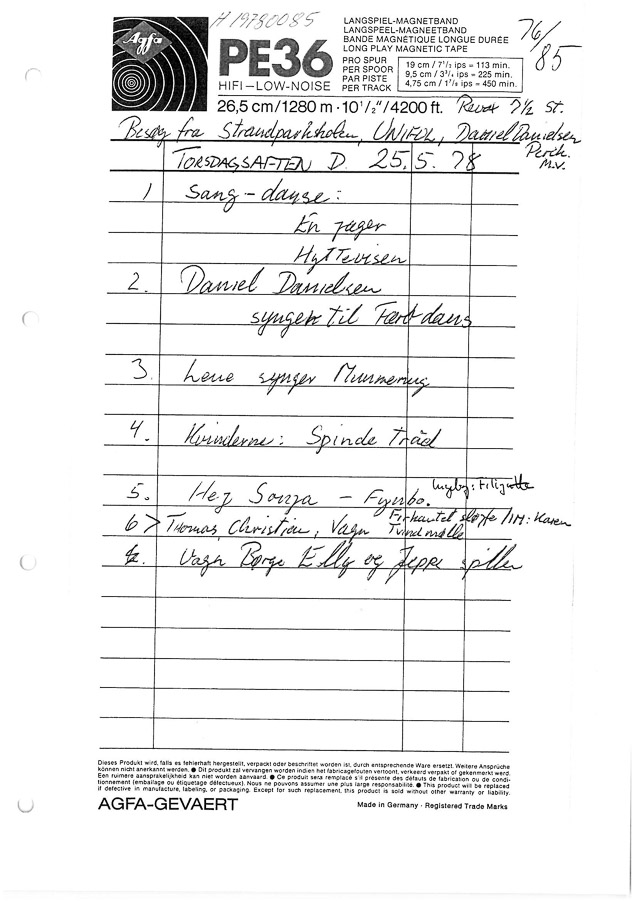 H 19780085
76/85
Agfa
PE36
HIFI-LOW-NOISE
LANGSPIEL-MAGNETBAND
LANGSPEEL-MAGNEETBAND
BANDE MAGNÉTIQUE LONGUE DURÉE
LONG PLAY MAGNETIC TAPE
PRO SPUR
PER SPOOR
PAR PISTE
PER TRACK
19 cm / 7 1/2 ips = 113 min.
9,5 cm / 3 3/4 ips = 225 min.
4,75 cm / 1 7/8 ips = 450 min.
26,5 cm/1280 m · 10 1/2"/4200 ft. Revox 7 1/2 st.
Besøg fra Strandparkskolen, UNIFOL, Daniel Danielsen
TORSDAGSAFTEN D. 25.5.78
M.V.
1 Sang-danse:
En jager
Hyttevisen
2. Daniel Danielsen
synger til Færø dans
3. Lene synger
4. Kvinderne: Spinde Tråd
5. Hej Sonja - Fynbo.
6 > Thomas, Christian, Vagn Firkantet sløjfe / IM: Karen
Tvindmølle
Vagn Børge Elly og Jeppe spiller
Dieses Produkt wird, falls es fehlerhaft hergestellt, verpackt oder beschriftet worden ist, durch entsprechende Ware ersetzt. Weitere Ansprüche
können nicht anerkannt werden. ● Dit produkt zal vervangen worden indien het fabricagefouten vertoont, verkeerd verpakt of gekenmerkt werd.
Een ruimere aansprakelijkheid kan niet worden aanvaard. ● Ce produit sera remplacé s'il présente des défauts de fabrication ou de condi-
tionnement (emballage ou étiquetage défectueux). Nous ne pouvons assumer une plus large responsabilité. ● This product will be replaced
if defective in manufacture, labeling, or packaging. Except for such replacement, this product is sold without other warranty or liability.
AGFA-GEVAERT
Made in Germany · Registered Trade Marks